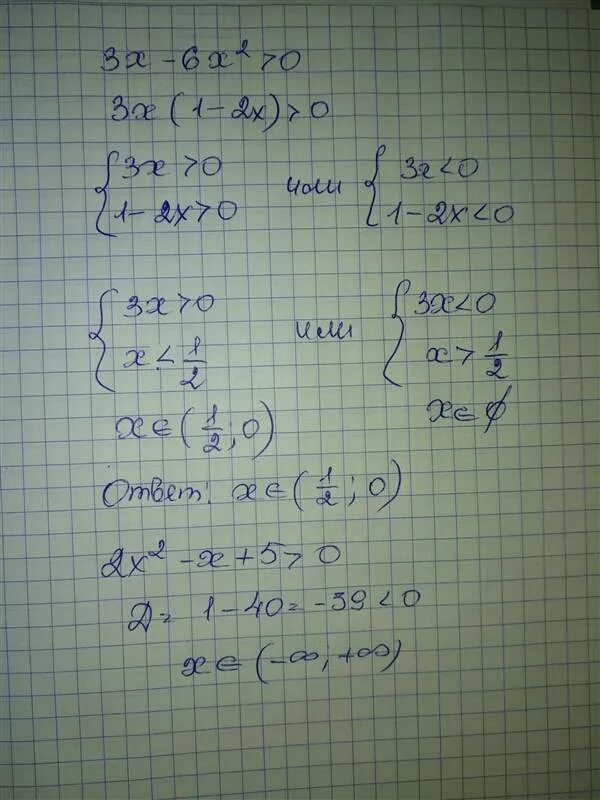 3x - 6x² > 0
3x (1 - 2x) > 0
{ 3x > 0
1 - 2x > 0
или
{ 3x < 0
1 - 2x < 0
{ 3x > 0
x < 1/2
или
{ 3x < 0
x > 1/2
x ∈ (1/2; 0)
x ∈ ∅
Ответ: x ∈ (1/2; 0)
2x² - x + 5 > 0
Д = 1 - 40 = -39 < 0
x ∈ (-∞; +∞)